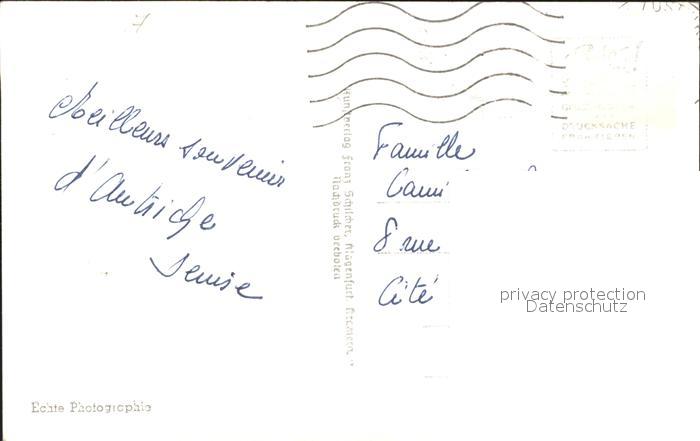 Meilleurs souvenir
d'Autriche
Denise
Famille
Cami
8 rue
Cité
privacy protection
Datenschutz
DRUCKSACHE
Kunstverlag Franz Schilcher, Klagenfurt
Nachdruck verboten
Echte Photographie